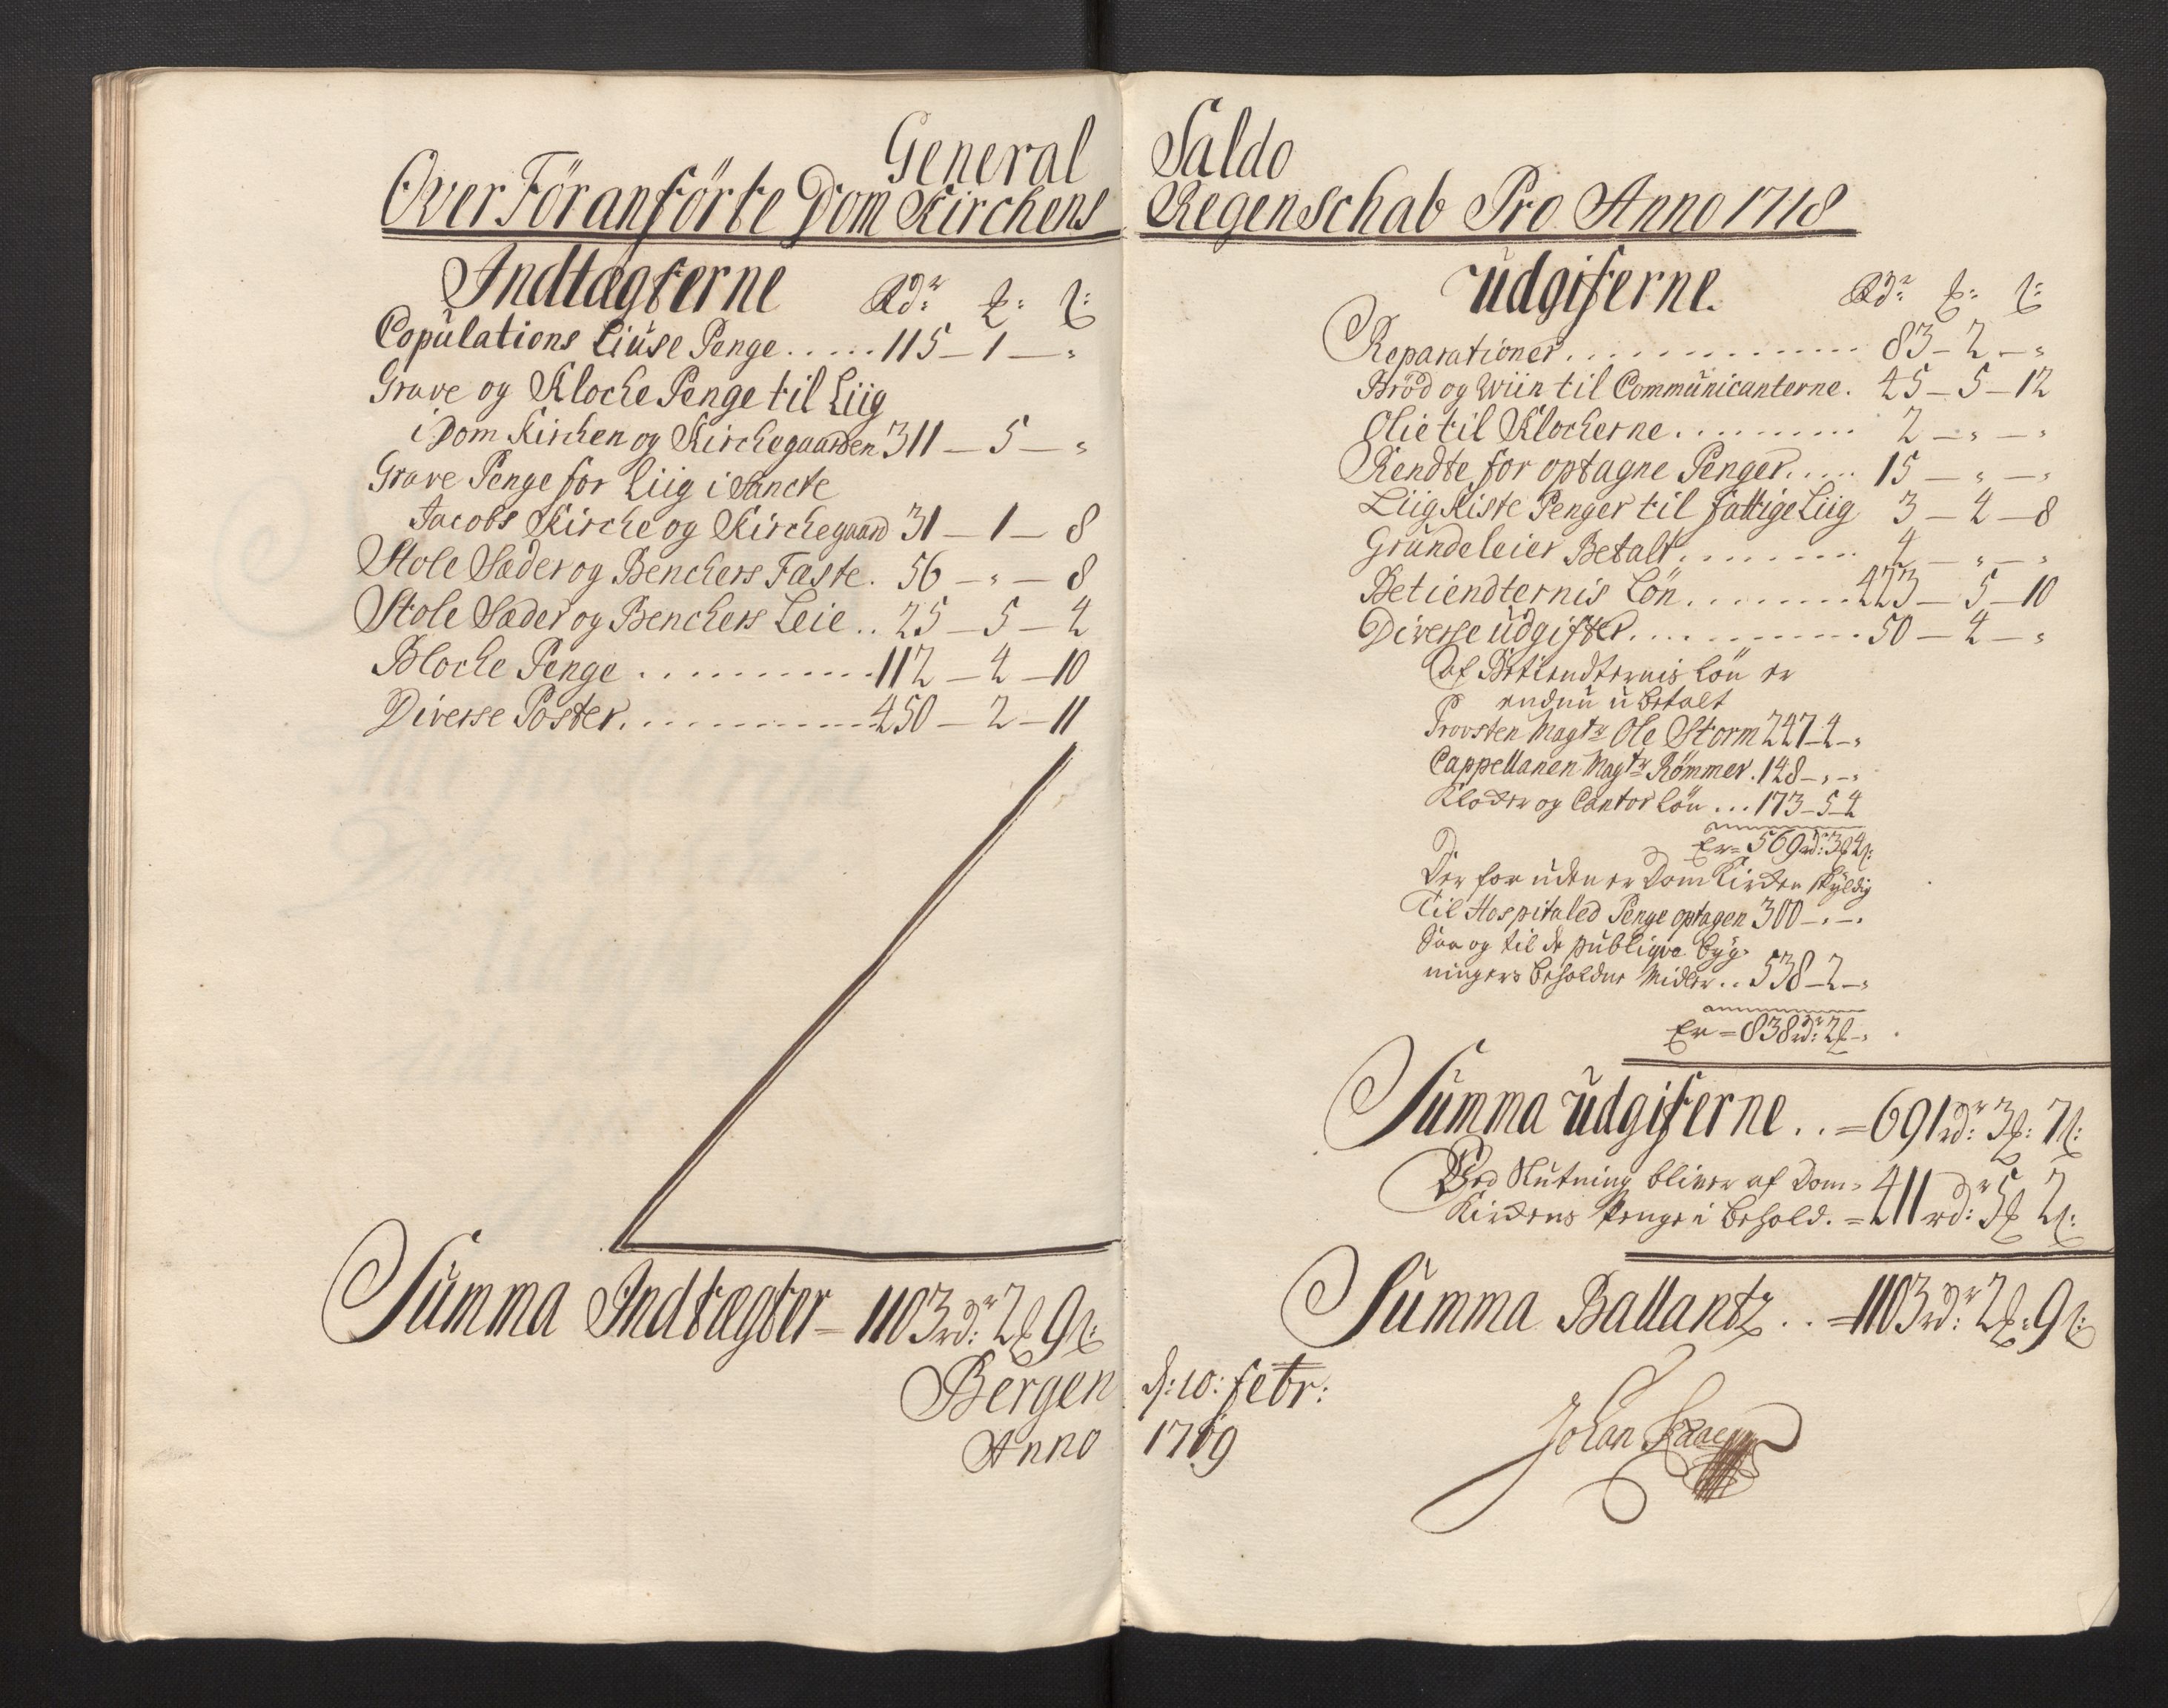 General Saldo
Over Föranförte Dom Kirchens Regenschab Pro Anno 1718
Indtægterne Rdr: ꝳ: ẞ:
Copulations Liuse Penge ..... 115 – 1 – "
Grave og Kloche Penge til Liig
i Dom Kirchen og Kirchegaarden 311 – 5 – "
Grave Penge for Liig i Sancte
Jacobs Kirche og Kirchegaard 31 – 1 – 8
Stole Sæder og Benchers Fæste . 56 – " – 8
Stole Sæder og Benchers Leie .. 25 – 5 – 4
Bloche Penge .......... 112 – 4 – 10
Diverse Poster .......... 450 – 2 – 11
Summa Indtægter = 1103 rdr: 2 ꝳ 9 ẞ:
Bergen d: 10: febr:
Anno 1719
Udgifterne. Rdr: ꝳ: ẞ:
Reparationer .......... 83 – 2 – "
Bröd og Wiin til Communicanterne . 45 – 5 – 12
Olie til Klocherne ......... 2 – " – "
Rendte for optagne Penger ..... 15 – " – "
Liig Kiste Penger til fattige Liig 3 – 4 – 8
Grundeleier Betalt ......... 4 – " – "
Betiendternis Lön ........ 423 – 5 – 10
Diverse Udgifter .......... 50 – 4 – "
af Betiendternis Lön er
endnu ubetalt
Provsten Magtr Ole Storm 247 – 4 – "
Cappellanen Magtr Römmer . 148 – " – "
Klocker og Cantor Lön ... 173 – 5 – 4
Er = 569 rdr: 3 ꝳ 4 ẞ:
Der for uden er Dom Kircken skyldig
Til Hospitaled Penge optagen 300 – " – "
Saa og til de publiqve byg-
ningers beholdne Midler .. 538 – 2 – "
Er = 838 rdr: 2 ꝳ – "
Summa Udgifterne .. = 691 rdr: 3 ꝳ: 7 ẞ:
Ved Slutning bliver af Dom-
Kirckens Penge i behold. = 411 rdr: 5 ꝳ 2 ẞ:
Summa Ballantz .. = 1103 rdr: 2 ꝳ: 9 ẞ:
Johan